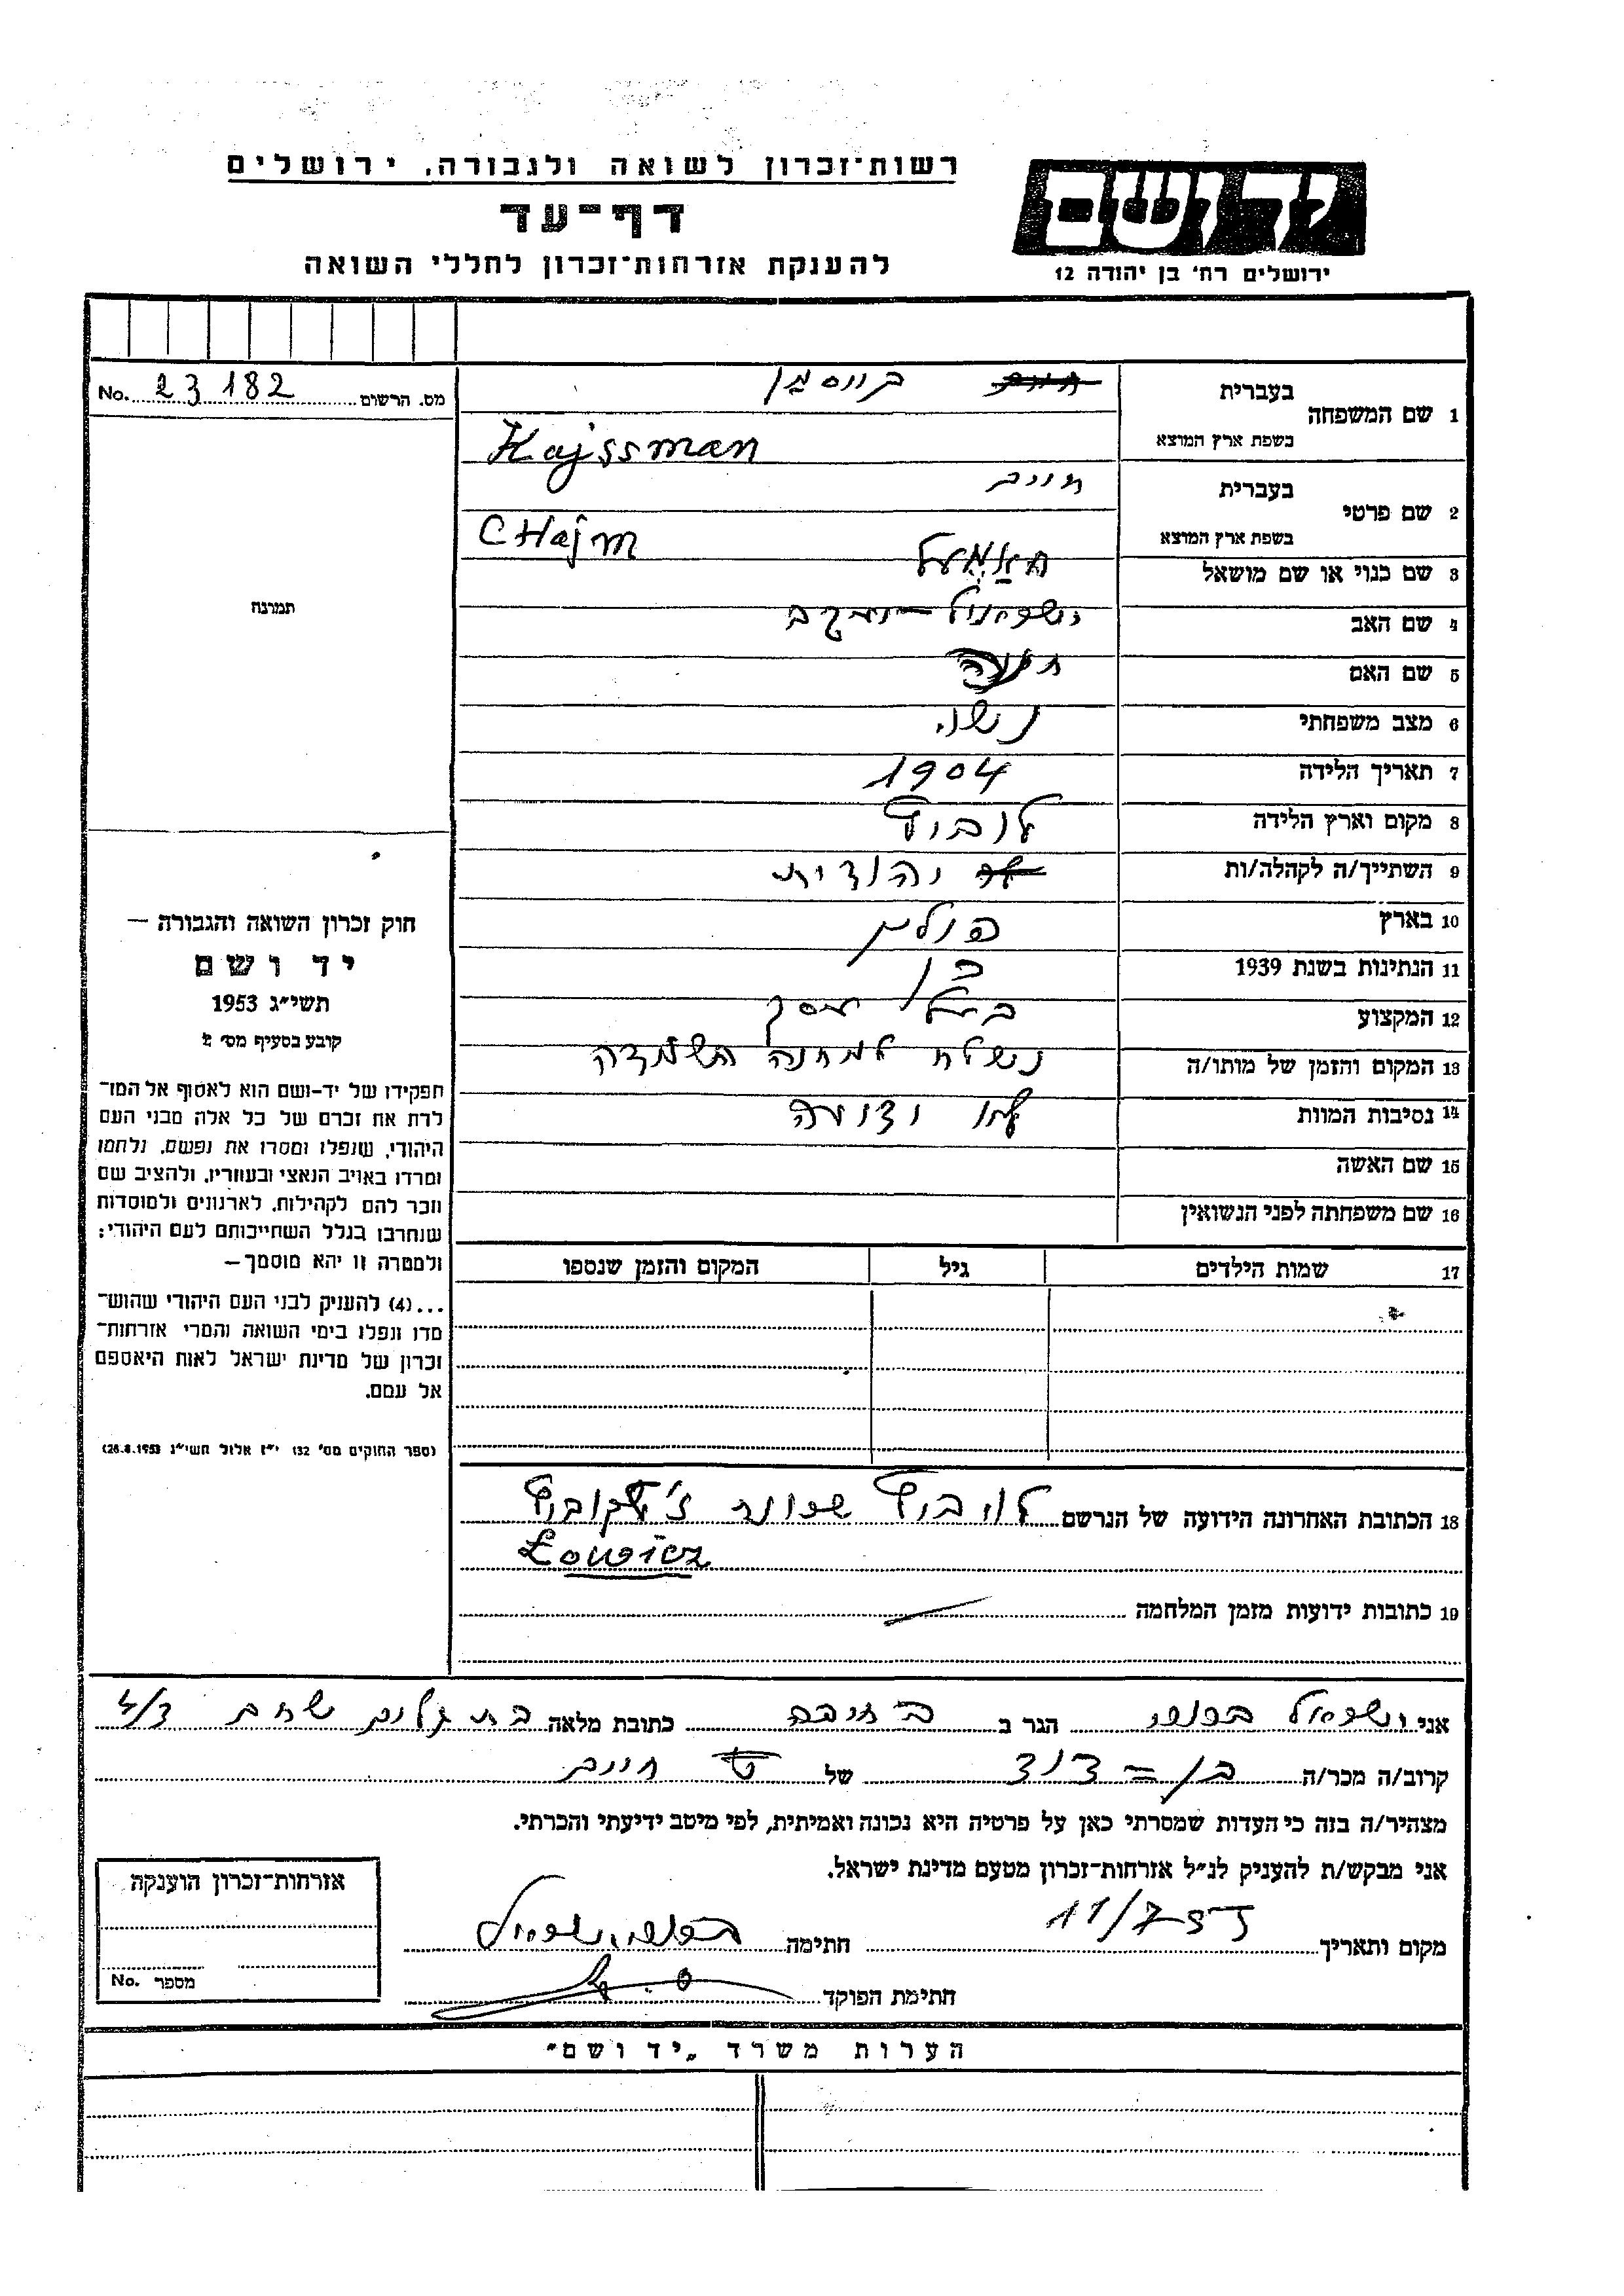 רשות־זכרון לשואה ולגבורה, ירושלים
דף־עד
להענקת אזרחות־זכרון לחללי השואה
ידושם
ירושלים רח' בן יהודה 12
מס. הרשום 23182 No.
תמונה
חוק זכרון השואה והגבורה —
יד ושם
תשי״ג 1953
קובע בסעיף מס׳ 2
תפקידו של יד-ושם הוא לאסוף אל המו־
לדת את זכרם של כל אלה מבני העם
היהודי, שנפלו ומסרו את נפשם, נלחמו
ומרדו באויב הנאצי ובעוזריו, ולהציב שם
וזכר להם לקהילות, לארגונים ולמוסדות
שנחרבו בגלל השתייכותם לעם היהודי;
ולמטרה זו יהא מוסמך—
...(4) להעניק לבני העם היהודי שהוש־
מדו ונפלו בימי השואה והמרי אזרחות־
זכרון של מדינת ישראל לאות היאספם
אל עמם.
(ספר החוקים מס׳ 132 י״ז אלול תשי״ג 28.8.1953)
1 שם המשפחה
בעברית
בשפת ארץ המוצא Kajssman
2 שם פרטי
בעברית חיים
בשפת ארץ המוצא CHajm
3 שם כנוי או שם מושאל
4 שם האב
5 שם האם
6 מצב משפחתי נשוי
7 תאריך הלידה 1904
8 מקום וארץ הלידה לוביץ
9 השתייך/ה לקהלה/ות יהודית
10 בארץ פולין
11 הנתינות בשנת 1939 כן
12 המקצוע בעל עסק
13 המקום והזמן של מותו/ה נשלח למחנה השמדה
14 נסיבות המוות לא ידועה
15 שם האשה
16 שם משפחתה לפני הנשואין
17 שמות הילדים גיל המקום והזמן שנספו
18 הכתובת האחרונה הידועה של הנרשם לוביץ
Łowicz
19 כתובות ידועות מזמן המלחמה
אני ישראל הגר ב חיפה כתובת מלאה בת גלים
קרוב/ה מכר/ה בן = דוד של חיים
מצהיר/ה בזה כי העדות שמסרתי כאן על פרטיה היא נכונה ואמיתית, לפי מיטב ידיעתי והכרתי.
אני מבקש/ת להעניק לנ״ל אזרחות־זכרון מטעם מדינת ישראל.
מקום ותאריך 11/7 חתימה
חתימת הפוקד
אזרחות־זכרון הוענקה
מספר No.
הערות משרד „יד ושם״